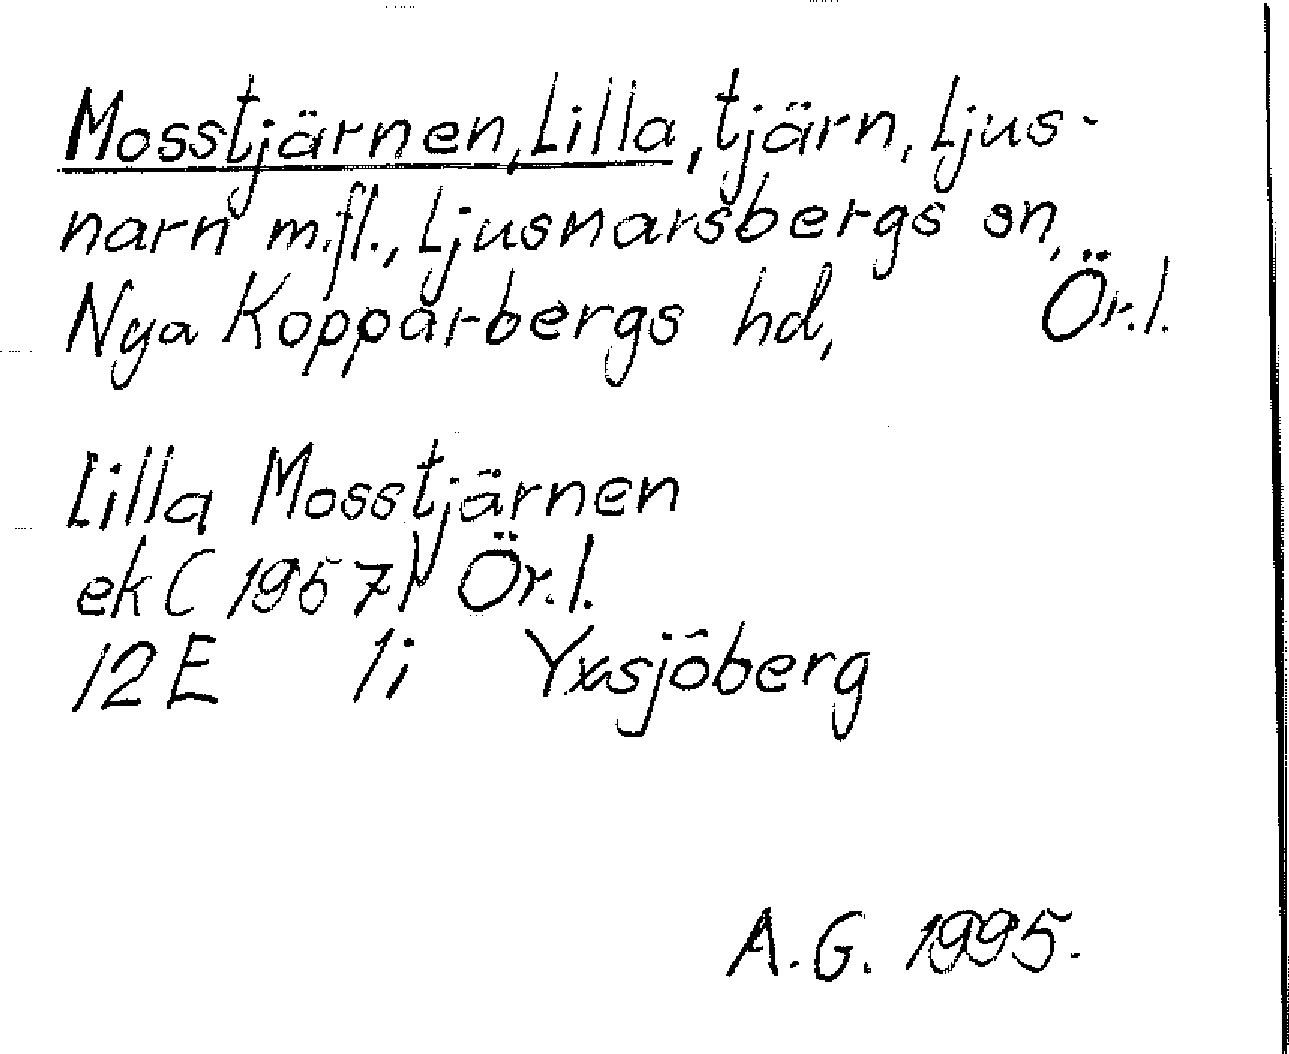 Mosstjärnen, Lilla, tjärn, Ljus-
narn m.fl., Ljusnarsbergs sn,
Nya Kopparbergs hd, Ör.l.
Lilla Mosstjärnen
ek (1957) Ör.l.
12E 1i Yxsjöberg
A.G. 1995.